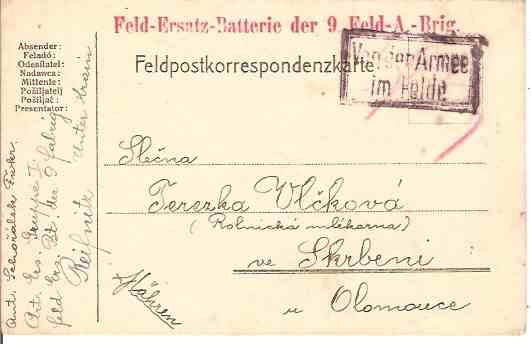 Feld-Ersatz-Batterie der 9. Feld-A.-Brig.
Von der Armee
im Felde
Feldpostkorrespondenzkarte.
Absender:
Feladó:
Odesílatel:
Nadawca:
Mittente:
Pošiljatelj
Pošiljač:
Presentator:
Slečna
Terezka Vlčková
(Rolnická mlékarna)
ve Skrbeni
u Olomouce
Mähren
Ant.
Art. Ers. Gruppe I.
feld Ers. Bt. der 9 fabrig
Reifnitz
Unter Krain